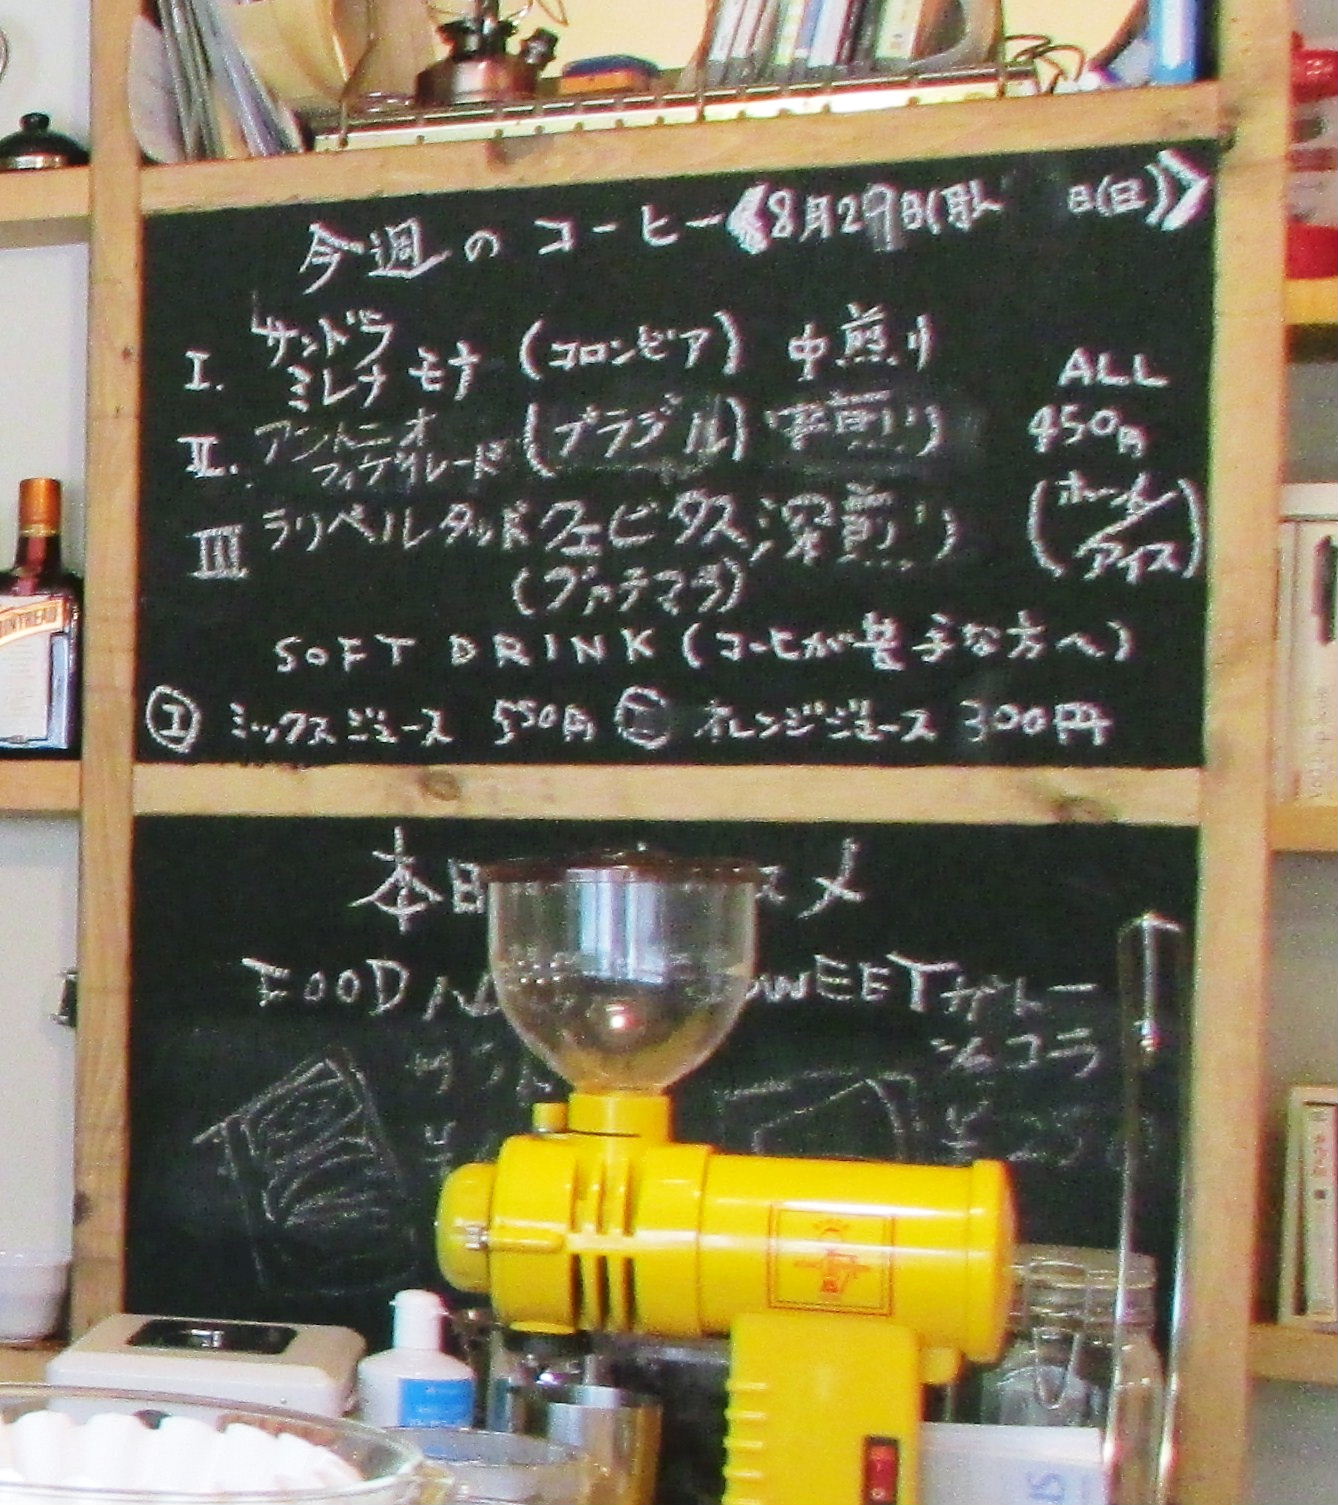 今週のコーヒー《8月29日(月)〜 日(日)》
I. サンドラ ミレナ モナ (コロンビア) 中煎り
ALL
II. アントニオ (ブラジル) 深煎り
450円
III ラリベルタッド ウエビタス 深煎り
(ホット アイス)
(グァテマラ)
SOFT DRINK (コーヒーが苦手な方へ)
① ミックスジュース 550円 ① オレンジジュース 300円
本日 スメ
FOOD SWEET ガトー
ショコラ